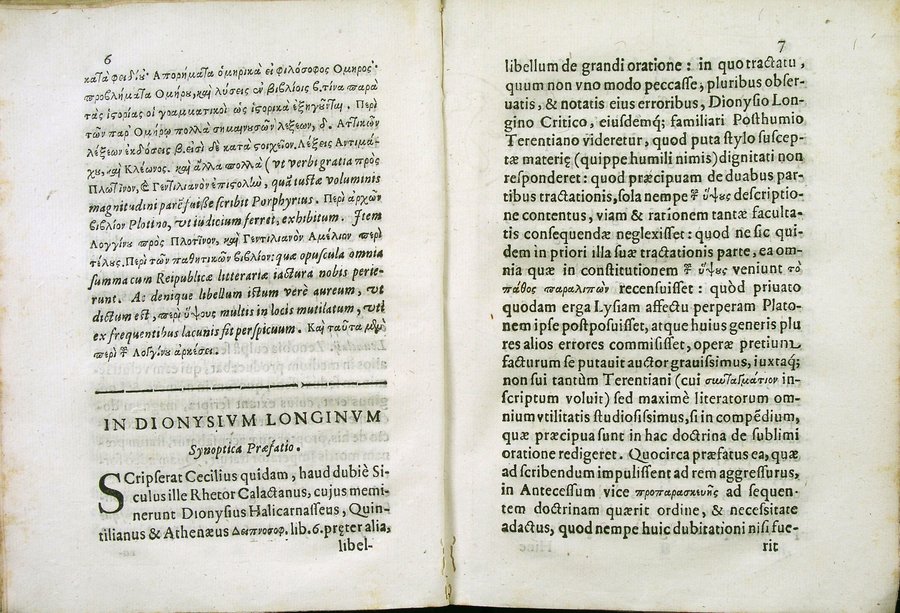 6
κατὰ φειδίου· Απορήματα ὁμηρικὰ εἰ φιλόσοφος Ομηρος·
προβλήματα Ομήρου, καὶ λύσεις ἐν βιβλίοις β. τίνα παρὰ
τὰς ἱστορίας οἱ γραμματικοὶ ὡς ἱστορικὰ ἐξηγοῦνται. Περὶ
τῶν παρ' Ομήρῳ πολλὰ σημαινουσῶν λέξεων, δ. Αττικῶν
λέξεων ἐκδόσεις β. εἰσὶ δὲ κατὰ στοιχεῖον. Λέξεις Αντιμά-
χου, καὶ Κλέωνος. καὶ ἄλλα πολλά (vt verbi gratia πρὸς
Πλωτῖνον, & Γεντιλιανὸν ἐπιστολὼ, quã iustæ voluminis
magnitudini parẽ fuisse scribit Porphyrius. Περὶ ἀρχῶν
βιβλίον Plotino, vt iudicium ferret, exhibitum. Item
Λογγίνου πρὸς Πλοτῖνον, καὶ Γεντιλιανὸν Αμέλιον περὶ
τέλους. Περὶ τῶν παθητικῶν βιβλίον: quæ opuscula omnia
summa cum Reipublicæ litterariæ iactura nobis perie-
runt. Ac denique libellum istum verè aureum, vti
dictum est, περὶ ὕψους multis in locis mutilatum, vti
ex frequentibus lacunis fit perspicuum. Καὶ ταῦτα μὲν
περὶ τοῦ Λογίνου ἀρκέσει.
IN DIONYSIVM LONGINVM
Synoptica Præfatio.
SCripserat Cecilius quidam, haud dubiè Si-
culus ille Rhetor Calactanus, cujus memi-
nerunt Dionysius Halicarnasseus, Quin-
tilianus & Athenæus Δειπνοσοφ. lib. 6. pręter alia,
libel-
7
libellum de grandi oratione: in quo tractatu,
quum non vno modo peccasse, pluribus obser-
uatis, & notatis eius erroribus, Dionysio Lon-
gino Critico, eiusdemq; familiari Posthumio
Terentiano videretur, quod puta stylo suscep-
tæ materię (quippe humili nimis) dignitati non
responderet: quod præcipuam de duabus par-
tibus tractationis, sola nempe τοῦ ὕψους descriptio-
ne contentus, viam & rationem tantæ faculta-
tis consequendæ neglexisset: quod ne sic qui-
dem in priori illa suæ tractationis parte, ea om-
nia quæ in constitutionem τοῦ ὕψους veniunt τὸ
πάθος παραλιπὼν recensuisset: quòd priuato
quodam erga Lysiam affectu perperam Plato-
nem ipse postposuisset, atque huius generis plu
res alios errores commisisset, operæ pretium
facturum se putauit auctor grauissimus, iuxtaq;
non sui tantùm Terentiani (cui συνταγμάτιον in-
scriptum voluit) sed maximè literatorum om-
nium vtilitatis studiosissimus, si in compẽdium,
quæ præcipua sunt in hac doctrina de sublimi
oratione redigeret. Quocirca præfatus ea, quæ
ad scribendum impulissent ad rem aggressurus,
in Antecessum vice προπαρασκευῆς ad sequen-
tem doctrinam quærit ordine, & necessitate
adactus, quod nempe huic dubitationi nisi fue-
rit